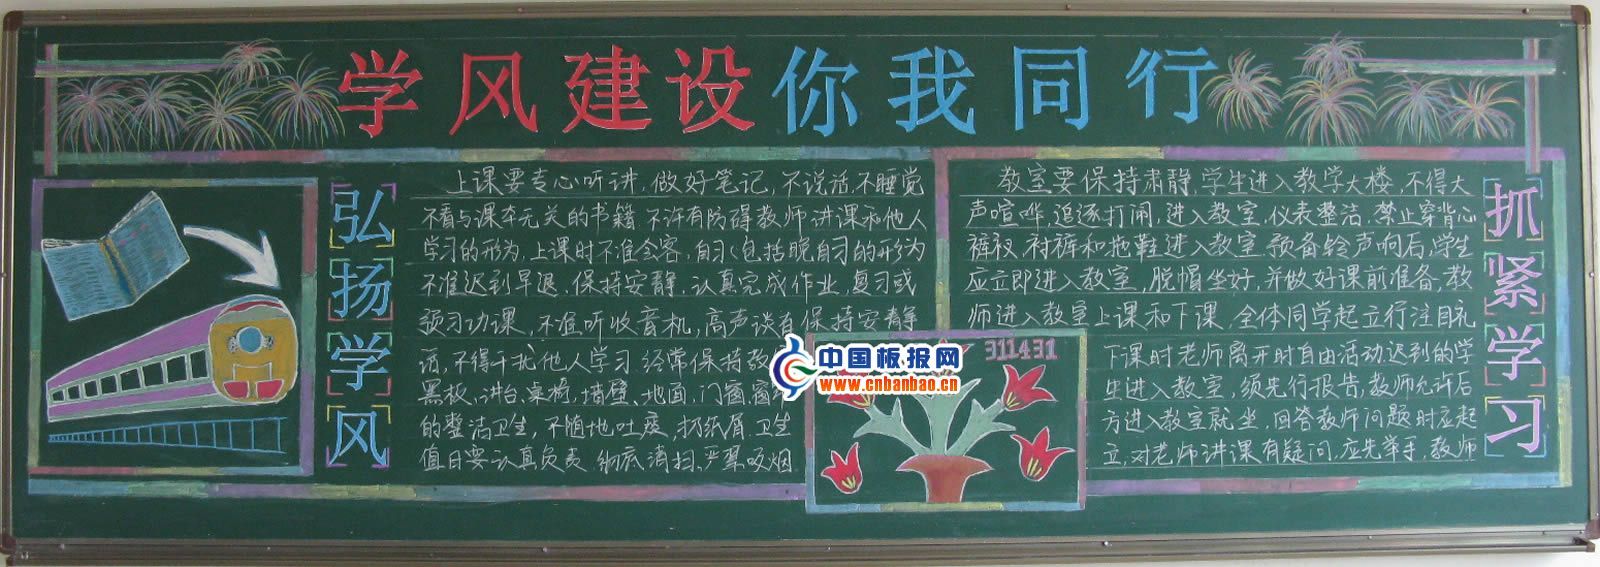 学风建设你我同行
弘扬学风
上课要专心听讲,做好笔记,不说话,不睡觉
不看与课本无关的书籍 不许有防碍教师讲课和他人
学习的形为,上课时不准会客,自习(包括晚自习的形为
不准迟到早退,保持安静,认真完成作业,复习或
预习功课,不准听收音机,高声谈有保持安静
话,不得干扰他人学习 经常保持教
黑板、讲台、桌椅、墙壁、地面,门窗窗
的整洁卫生,不随地吐痰,扔纸屑 卫生
值日要认真负责 彻底清扫、严禁吸烟
教室要保持肃静,学生进入教学大楼,不得大
声喧哗,追逐打闹,进入教室,仪表整洁,禁止穿背心
裤衩,衬裤和拖鞋进入教室 预备铃声响后,学生
应立即进入教室,脱帽坐好,并做好课前准备,教
师进入教室上课和下课,全体同学起立行注目礼
下课时老师离开时自由活动迟到的学
生进入教室,须先行报告,教师允许后
方进入教室就坐,回答教师问题时应起
立,对老师讲课有疑问,应先举手,教师
抓紧学习
311431
中国板报网
www.cnbanbao.cn